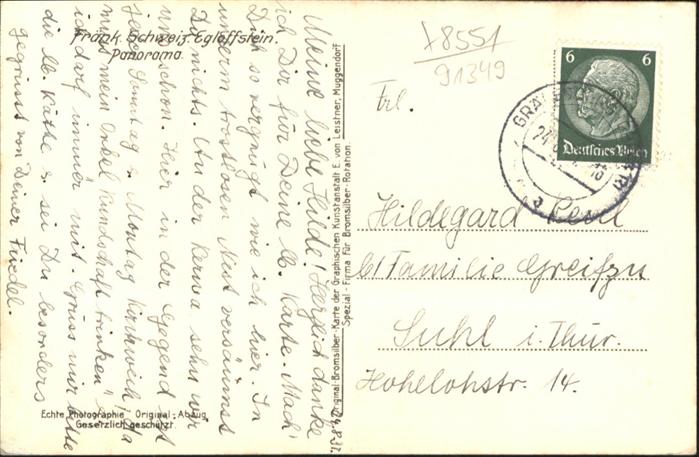 Fränk. Schweiz. Egloffstein.
Panorama.
Meine liebe Hilde! Herzlich danke
ich Dir für Deine lb. Karte. Mach'
Dich so vergnügt wie ich hier. In
unserm trostlosen Nest versäumst
Du nichts. Von der Kerwa sehn wir
uns schon. Hier in der Gegend ist
jeden Sonntag u. Montag Kirchweih da
muss mein Onkel Kundschaft trinken u.
ich darf immer mit. Grüss mir bitte
die lb. Käthe u. sei Du besonders
gegrüsst von Deiner Friedel.
Echte Photographie Original-Abzug
Gesetzlich geschützt.
Original Bromsilber-Karte der Graphischen Kunstanstalt E. von Leistner, Muggendorf
Spezial-Firma für Bromsilber-Rotation.
8.37.
78551
91349
6 6
Deutsches Reich
GRÄ
Frl.
Hildegard
b/ Familie Greifzu
Suhl i. Thür.
Hohelohstr. 14.